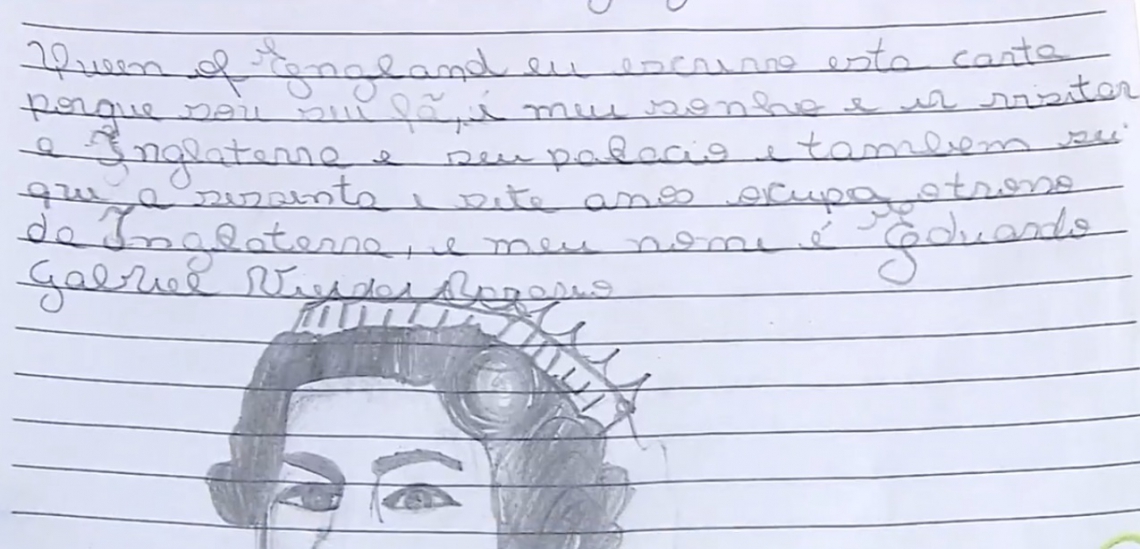 Queen of England eu escrevo esta carta
porque sou seu fã, é meu sonho e ir visitar
a Inglaterra e seu palacio e tambem sei
que a sesenta e sete anos ocupa otrono
da Inglaterra, e meu nome é Eduardo
Gabriel